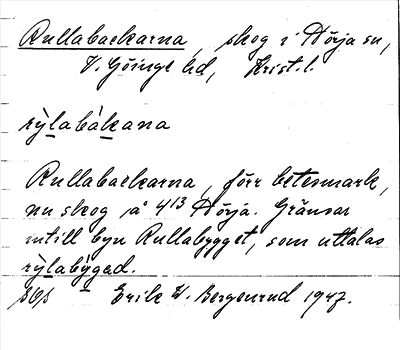 Rullabackarna, skog i Hörja sn,
V. Göinge hd, Krist. l.
rỳlabàkana
Rullabackarna, förr betesmark,
nu skog å 4¹³ Hörja. Gränsar
intill byn Rullabygget, som uttalas
rỳlabygəd.
Erik W. Bergenrud 1947.